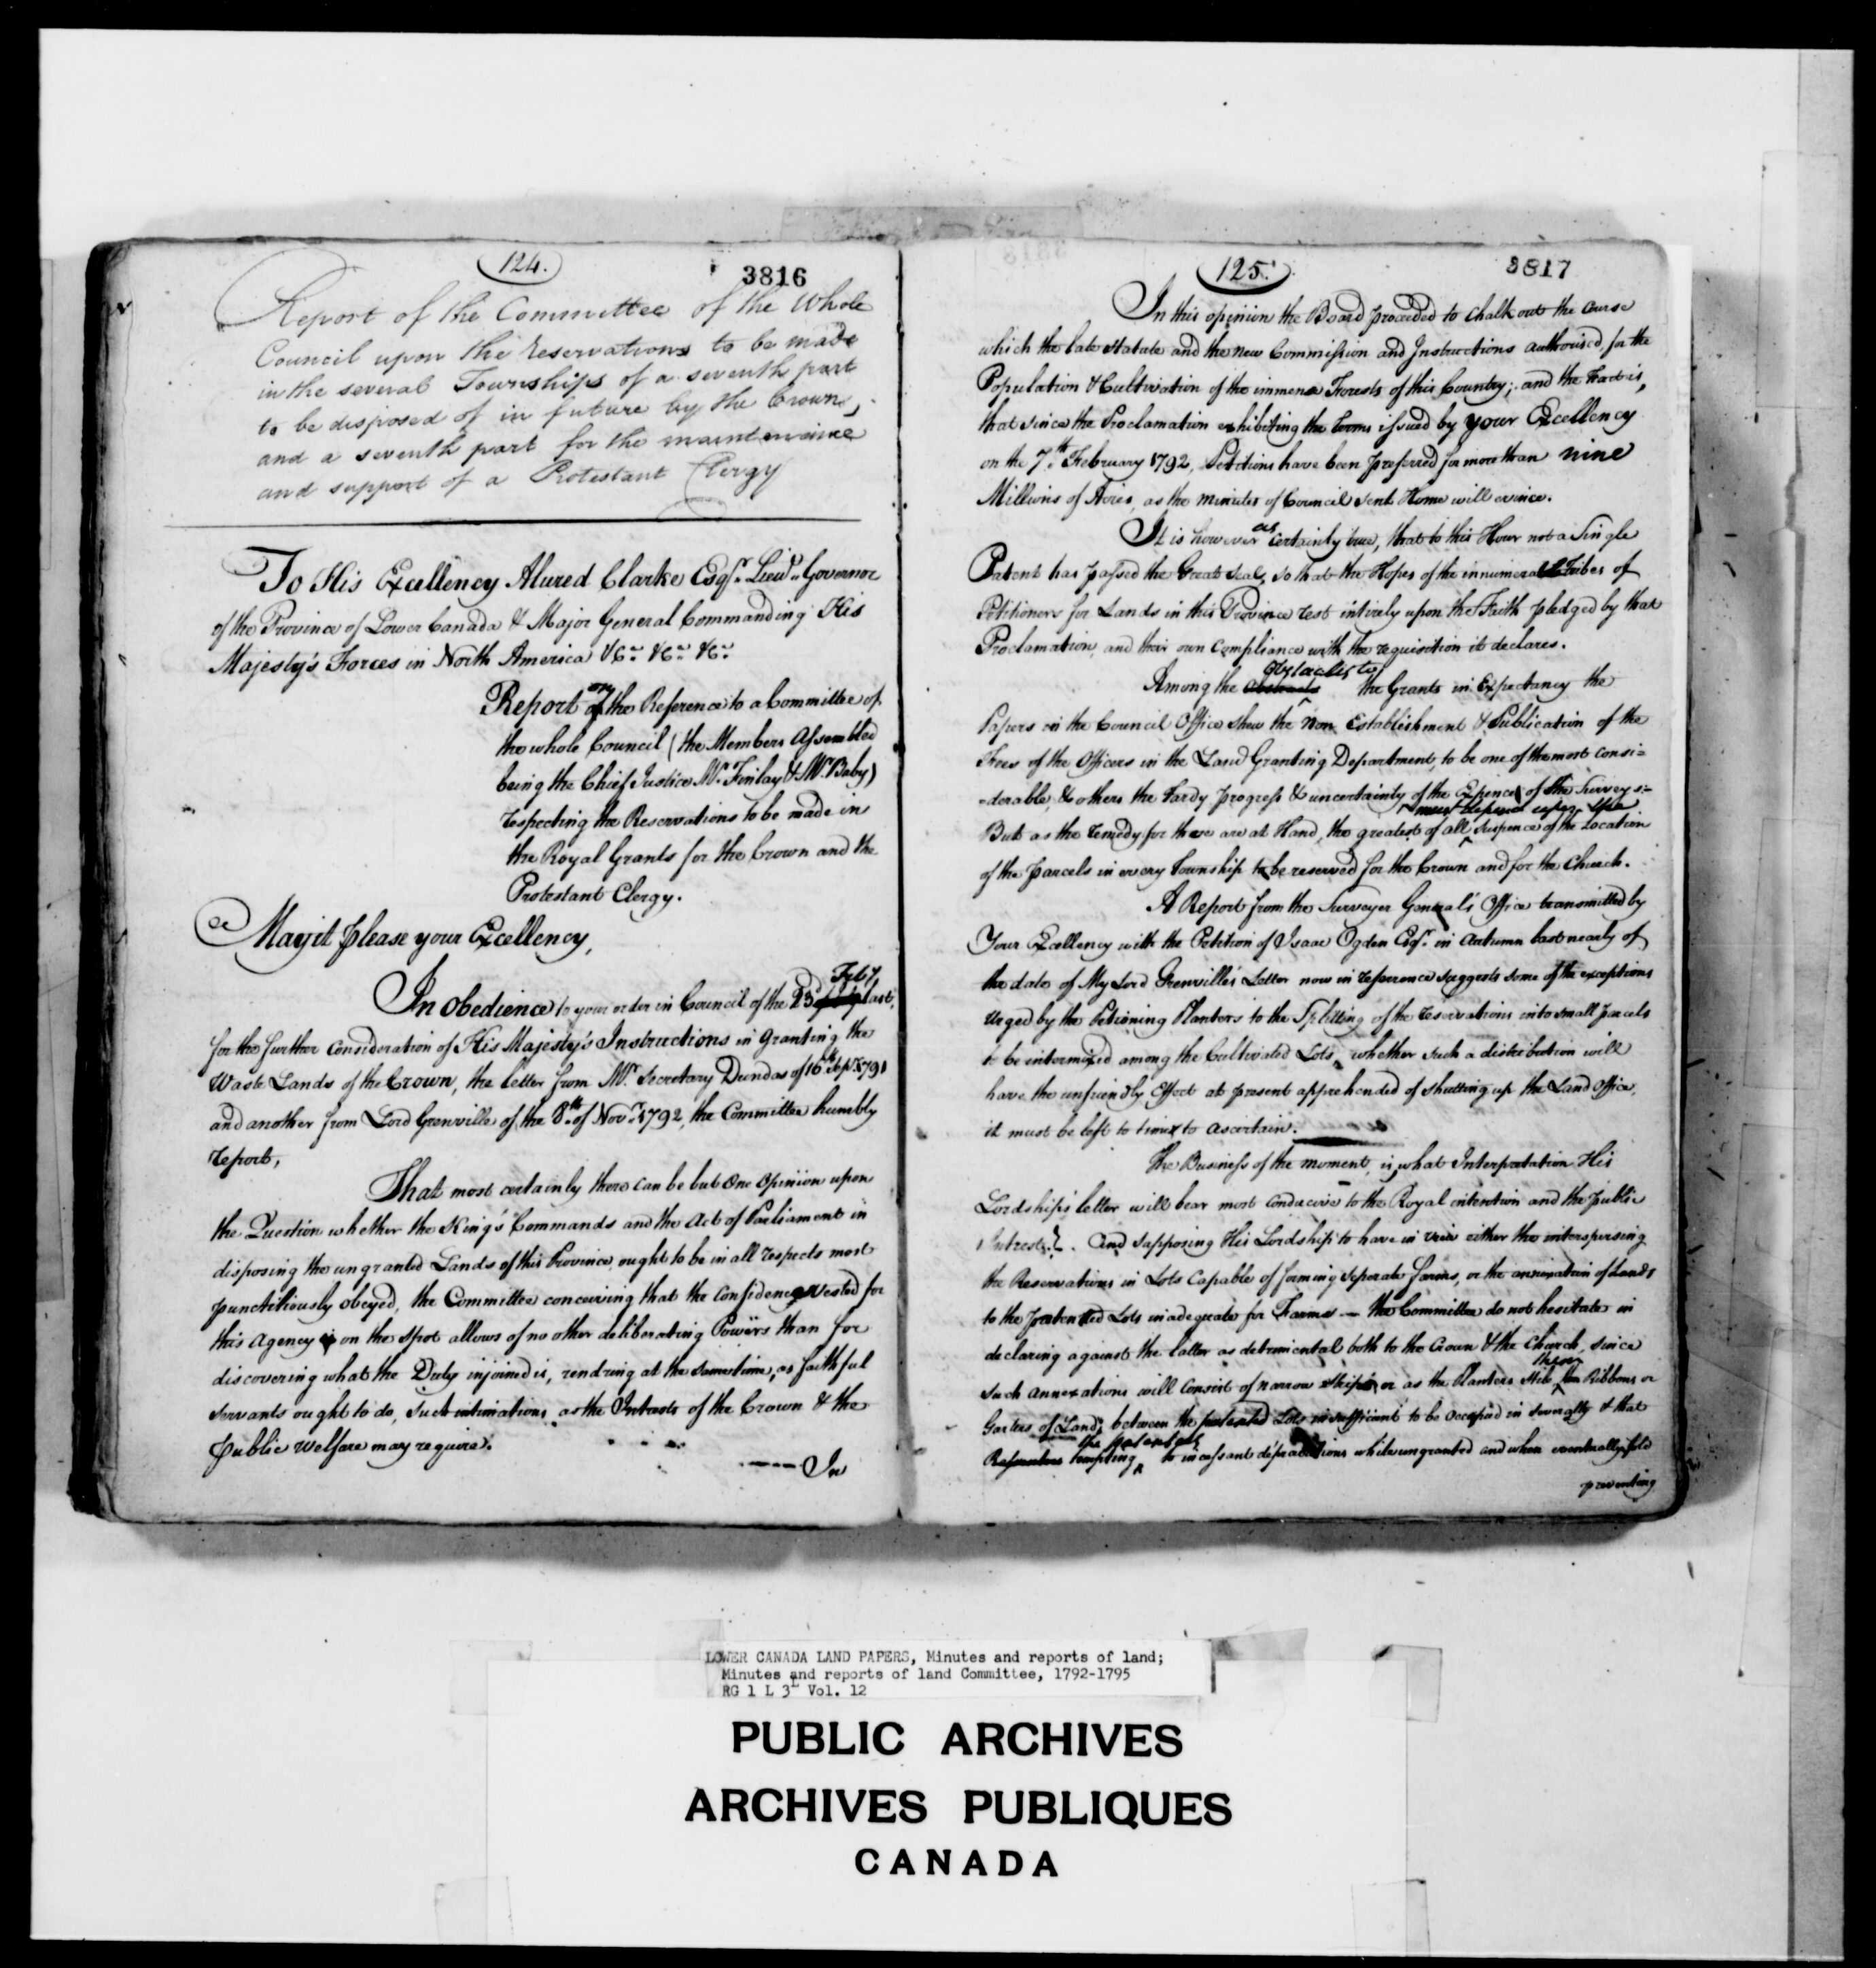 124.
3816
Report of the Committee of the Whole
Council upon the reservations to be made
in the several Townships of a seventh part
to be disposed of in future by the Crown,
and a seventh part for the maintenance
and support of a Protestant Clergy
To His Excellency Alured Clarke Esqr. Lieut. Governor
of the Province of Lower Canada & Major General Commanding His
Majesty's Forces in North America &c. &c. &c.
Report on the Reference to a Committee of
the whole Council (the Members Assembled
being the Chief Justice Mr. Finlay & Mr. Baby)
respecting the Reservations to be made in
the Royal Grants for the Crown and the
Protestant Clergy.
May it please your Excellency,
In obedience to your order in Council of the 23 Feby. last,
for the further consideration of His Majesty's Instructions in Granting the
Waste Lands of the Crown, the letter from Mr. Secretary Dundas of 16th Sepr. 1791
and another from Lord Grenville of the 8th. of Novr. 1792, the Committee humbly
report,
That most certainly there can be but One Opinion upon
the Question whether the King's Commands and the Act of Parliament in
disposing the ungranted Lands of this Province, ought to be in all respects most
punctiliously obeyed, the Committee conceiving that the Confidence vested for
this Agency on the Spot allows of no other deliberating Powers than for
discovering what the Duty injoined is, rendring at the same time, as faithful
servants ought to do, such intimations as the Intrests of the Crown & the
Public Welfare may require.
In
125.
3817
In this opinion the Board proceeded to Chalk out the Course
which the late Statute and the new Commission and Instructions authorised for the
Population & Cultivation of the immense Forests of this Country; and the Fact is,
that since the Proclamation exhibiting the terms issued by your Excellency
on the 7th. February 1792, Petitions have been preferred for more than nine
Millions of Acres, as the Minutes of Council sent Home will evince.
It is however as certainly true, that to this Hour not a Single
Patent has passed the Great Seal, so that the Hopes of the innumerable Tribes of
Petitioners for Lands in this Province rest intirely upon the Faith pledged by that
Proclamation, and their own Compliance with the requisition it declares.
Among the obstacles to the Grants in Expectancy the
Papers in the Council Office shew the non Establishment & Publication of the
Fees of the Officers in the Land Granting Department, to be one of the most consi=
-derable, & others the Tardy progress & uncertainty of the Expence of the Surveys:-
But as the remedy for these are at Hand, the greatest of all must depend upon the suspence of the Location
of the parcels in every Township to be reserved for the Crown and for the Church.
A Report from the Surveyor General's Office transmitted by
Your Excellency with the Petition of Isaac Ogden Esqr. in Autumn last nearly of
the date of My Lord Grenville's Letter now in reference suggests some of the exceptions
Urged by the Petioning Planters to the Splitting of the reservations into small parcels
to be intermixed among the Cultivated Lots, whether such a distribution will
have the unfriendly Effect at present apprehended of shutting up the Land Office,
it must be left to time to ascertain.
The Business of the moment, is, what Interpretation His
Lordship's letter will bear most conducive to the Royal intention and the public
Intrests. And supposing His Lordship to have in view either the interspersing
the Reservations in Lots Capable of forming seperate farms, or the annexation of Lands
to the patented Lots inadequate for Farms — the Committee do not hesitate in
declaring against the latter as detrimental both to the Crown & the Church, since
such annexations will Consist of narrow strips or as the Planters stile them Ribbons or
Garters of Land; between the patented Lots insufficient to be occupied in severalty & that
tempting the patentees to incessant depredations while ungranted and when eventually sold
preventing
LOWER CANADA LAND PAPERS, Minutes and reports of land;
Minutes and reports of land Committee, 1792-1795
RG 1 L 3L Vol. 12
PUBLIC ARCHIVES
ARCHIVES PUBLIQUES
CANADA